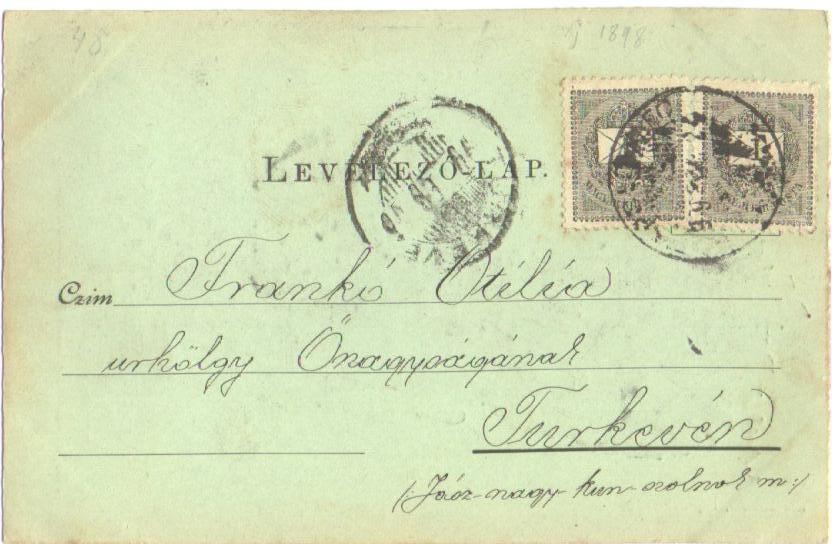 48
1898
LEVELEZŐ-LAP.
Czim Frankó Otélia
urhölgy Őnagyságának
Turkevén
(Jász-nagy-kun-szolnok m:)